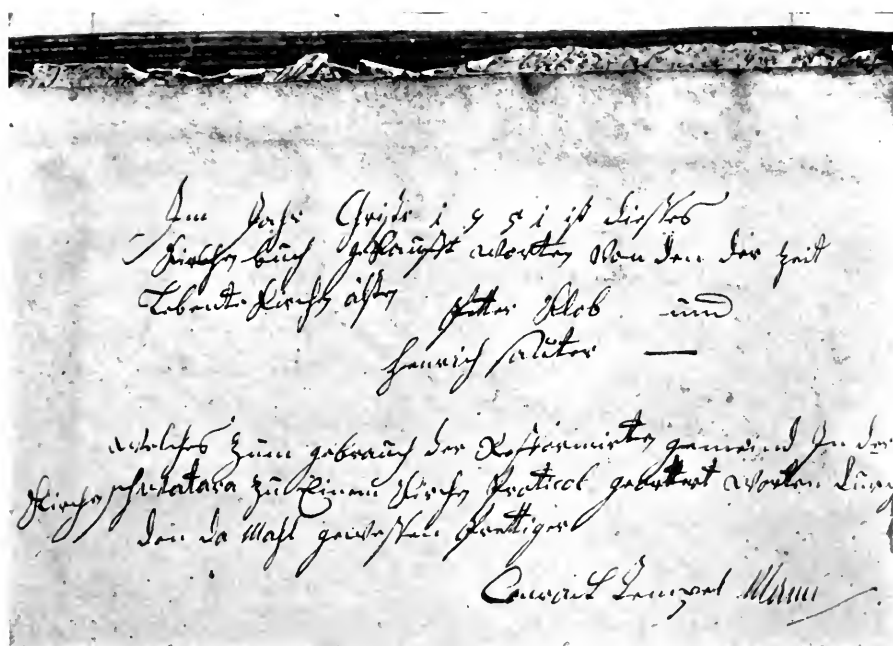 Im Jahr Christi 1751 ist diesses
Kirchen buch gekaufft worten Von den der zeit
Lebente Kirchen älsten Petter Klob und
Henrich Sauter —
welches zum gebrauch der Refformirten gemeind In der
Kirchen schwatara zu Einem Kirchen Proticol georttert worten durch
den da Mahl gewessen Prettiger
Conrad Tempel Mann